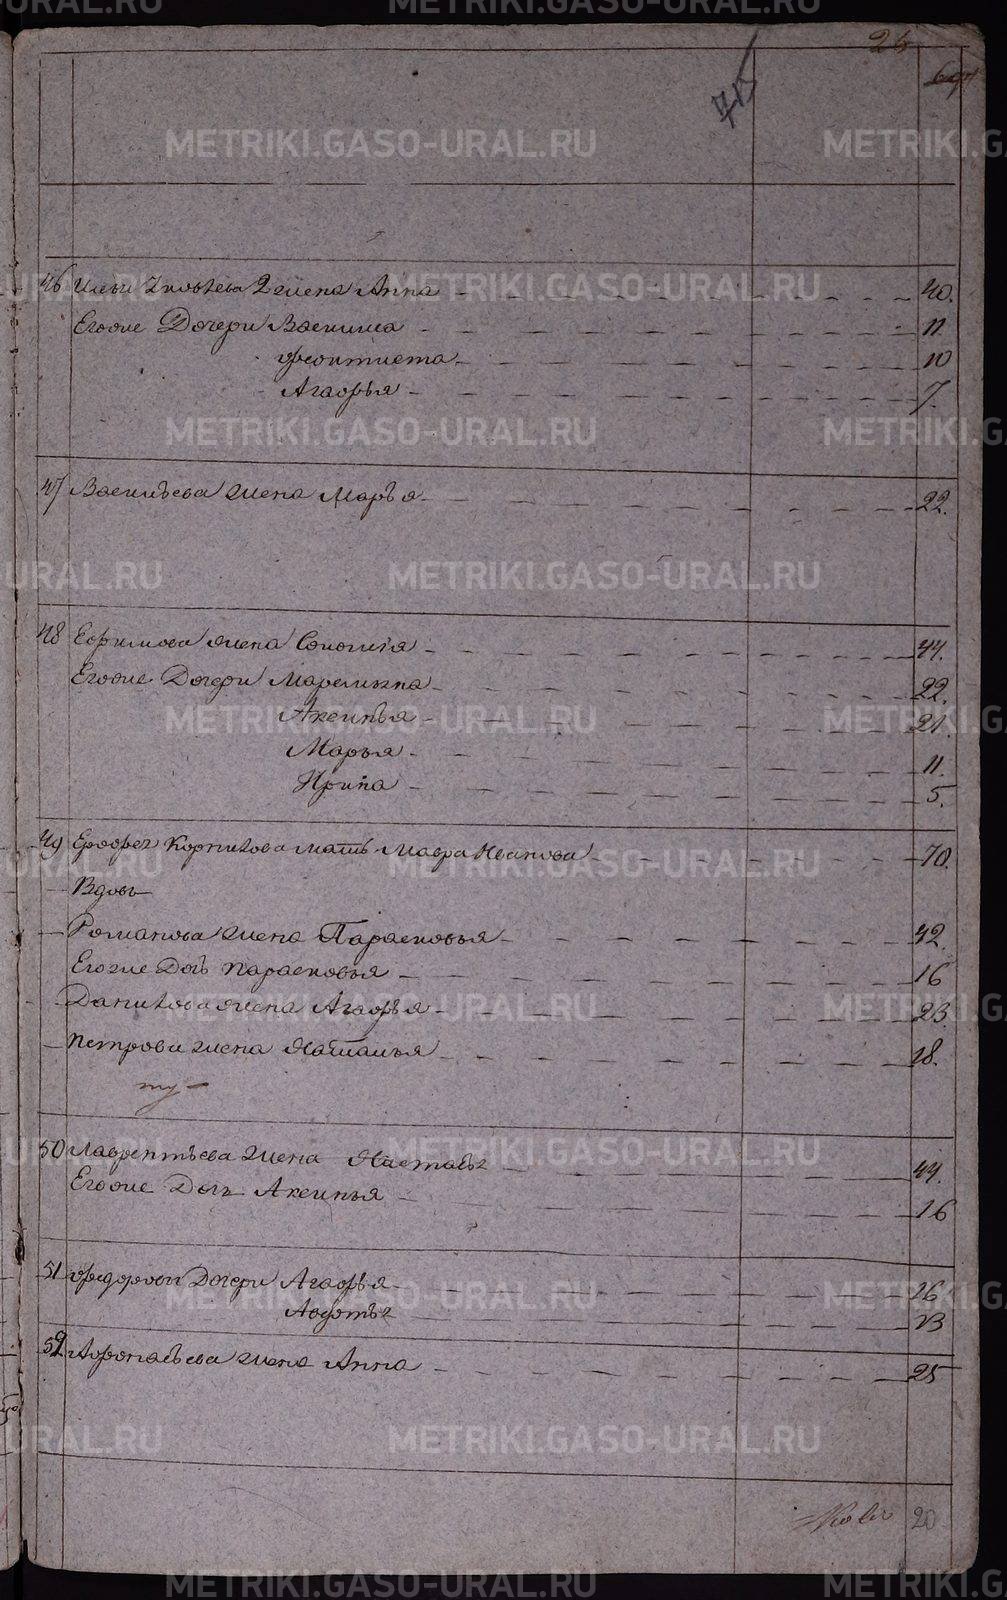 26
METRIKI.GASO-URAL.RU
46 Ильи Яковлева 2 жена Анна 40.
Егоже Дочери Васишса 11
Феоктиста 10
Агафья 7.
47 Васильева жена Марья 22.
48 Ефимова жена Соломия 44.
Егоже Дочери Маремьяна 22.
Аксинья 21.
Марья 11.
Ирина 5.
49 Ерофея Корнилова мать Мавра Иванова 70.
Вдовы
Романова жена Парасковья 42.
Егоже Дочь Парасковья 16
Данилова жена Агафья 23.
Петрова жена Наталья 18.
ту
50 Лаврентьева жена Настасья 44.
Егоже Дочь Аксинья 16
51 Федоровы Дочери Агафья 26
Авдотья 13
52 Афонасьева жена Анна 25
20